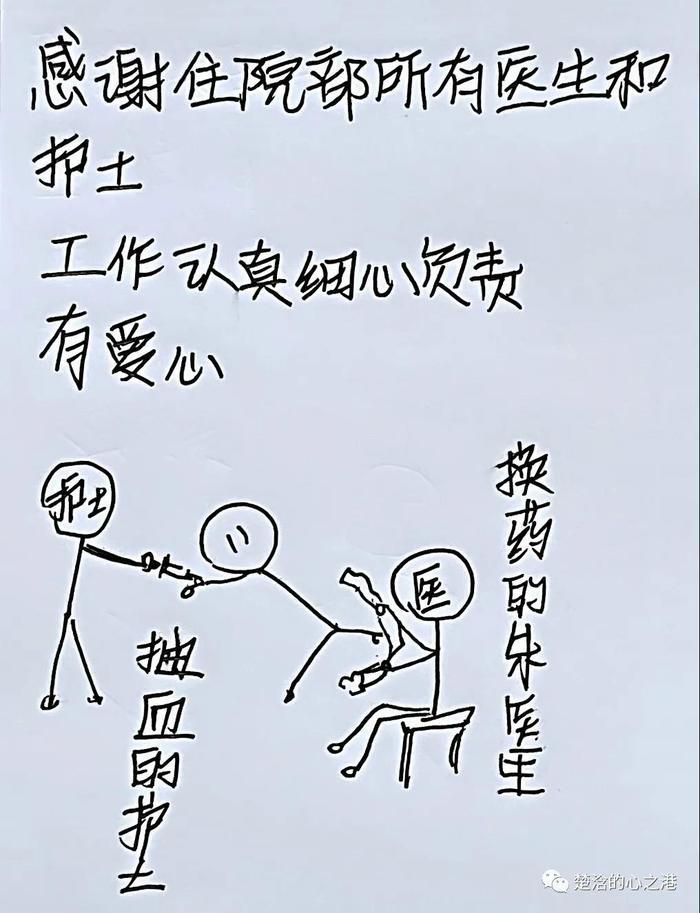 感谢住院部所有医生和
护士
工作认真细心负责
有爱心
护士
医
换药的朱医生
抽血的护士
楚浛的心之港